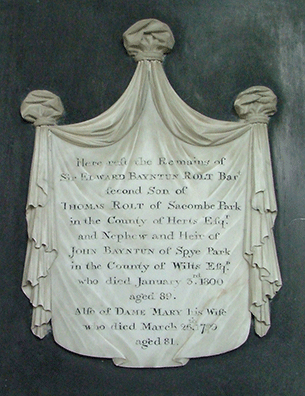 Here reſt the Remains of
Sir EDWARD BAYNTUN ROLT Barᵗ
ſecond Son of
THOMAS ROLT of Sacombe Park
in the County of Herts Eſqʳ
and Nephew and Heir of
JOHN BAYNTUN of Spye Park
in the County of Wilts Eſqʳ
who died January 3ʳᵈ 1800
aged 89.
Alſo of DAME MARY his Wife
who died March
aged 81.